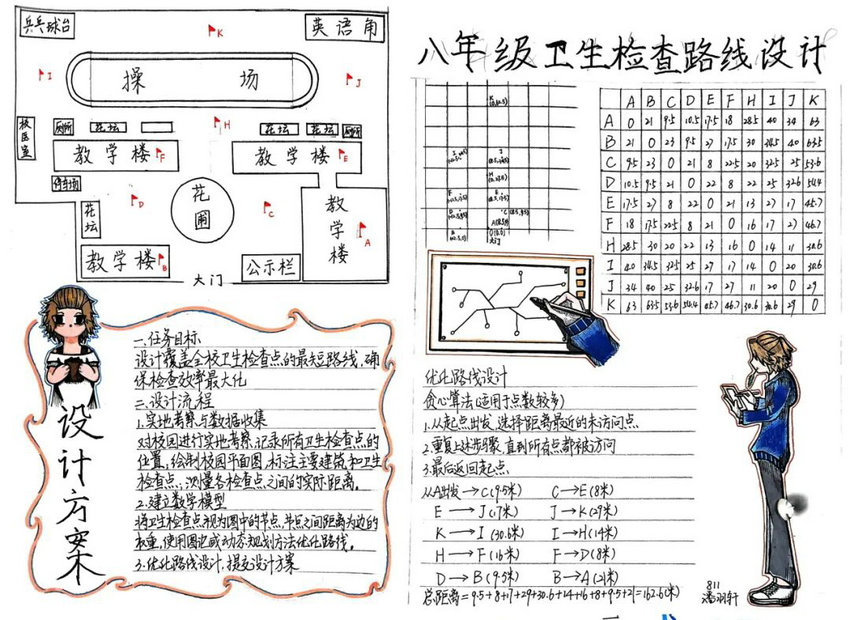 乒乓球台
英语角
K
I
操 场
J
H
校医室
厕所
花坛
花坛
花坛
厕所
教学楼
F
教学楼
E
停车场
D
花圃
C
花坛
教学楼
A
教学楼
B
公示栏
大门
设计方案
一.任务目标
设计覆盖全校卫生检查点的最短路线,确
保检查效率最大化
二.设计流程
1.实地考察与数据收集
对校园进行实地考察,记录所有卫生检查点的
位置,绘制校园平面图,标注主要建筑和卫生
检查点、测量各检查点之间的实际距离。
2.建立数学模型
将卫生检查点视为图中的节点,节点之间距离为边的
权重,使用图论或动态规划方法优化路线。
3.优化路线设计,提交设计方案
八年级卫生检查路线设计
A B C D E F H I J K
A 0 21 9.5 10.5 17.5 18 28.5 40 34 63
B 21 0 23 9.5 27 17.5 30 38.5 40 63.5
C 9.5 23 0 21 8 22.5 20 32.5 25 53.6
D 10.5 9.5 21 0 22 8 22 25 32.6 54.4
E 17.5 27 8 22 0 21 13 27 17 45.7
F 18 17.5 22.5 8 21 0 16 17 27 46.7
H 28.5 30 20 22 13 16 0 14 11 30.6
I 40 38.5 32.5 25 27 17 14 0 20 30.6
J 34 40 25 32.6 17 27 11 20 0 29
K 63 63.5 53.6 54.4 45.7 46.7 30.6 30.6 29 0
优化路线设计
贪心算法(适用于点数较多)
1.从起点出发,选择距离最近的未访问点.
2.重复上述步骤,直到所有点都被访问
3.最后返回起点
从A出发→C(9.5米) C→E(8米)
E→J(17米) J→K(29米)
K→I(30.6米) I→H(14米)
H→F(16米) F→D(8米)
D→B(9.5米) B→A(21米)
总距离=9.5+8+17+29+30.6+14+16+8+9.5+21=162.6(米)
811
潘羽轩